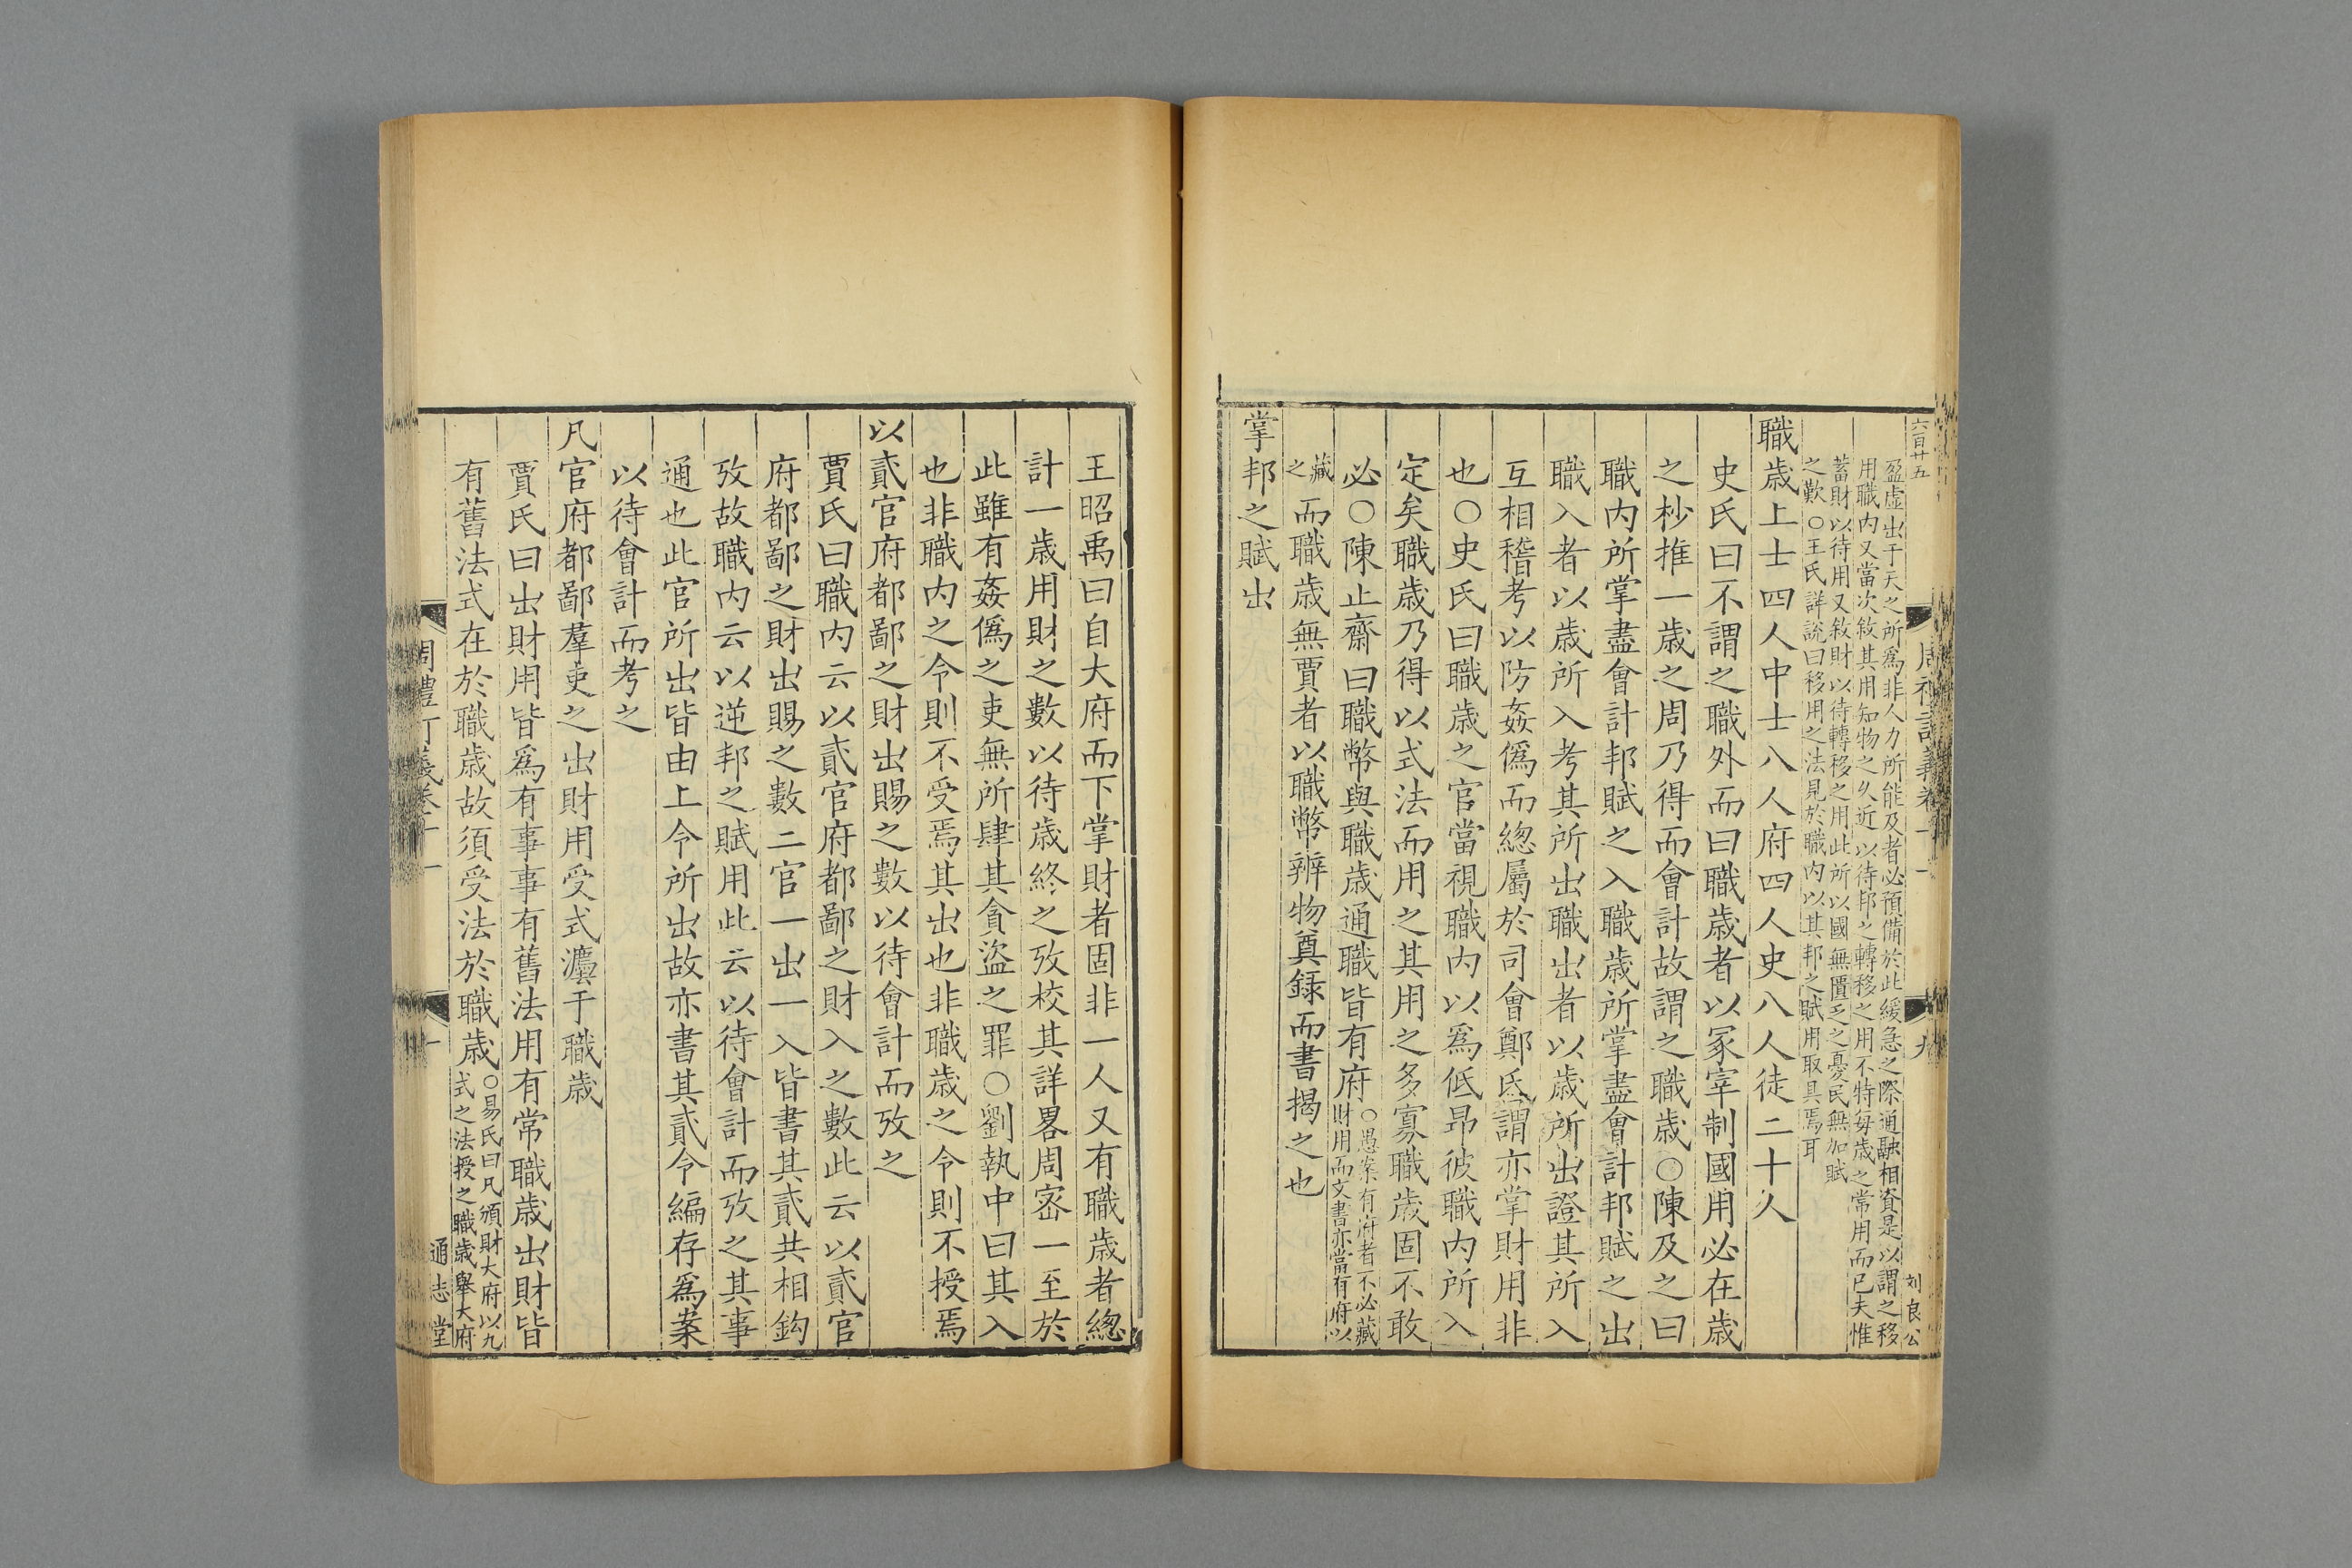 六百廿五
周禮訂義卷十一
九
刘良公
盈虛出于天之所爲非人力所能及者必預備於此緩急之際通融相資是以謂之移
用職内又當次敘其用知物之久近以待邦之轉移之用不特每歲之常用而已夫惟
蓄財以待用又敘財以待轉移之用此所以國無匱乏之憂民無加賦
之歎○王氏詳說曰移用之法見於職内以其邦之賦用取具焉耳
職歲上士四人中士八人府四人史八人徒二十人
史氏曰不謂之職外而曰職歲者以冢宰制國用必在歲
之杪推一歲之周乃得而會計故謂之職歲○陳及之曰
職内所掌盡會計邦賦之入職歲所掌盡會計邦賦之出
職入者以歲所入考其所出職出者以歲所出證其所入
互相稽考以防姦僞而總屬於司會鄭氏謂亦掌財用非
也○史氏曰職歲之官當視職内以爲低昂彼職内所入
定矣職歲乃得以式法而用之其用之多寡職歲固不敢
必○陳止齋曰職幣與職歲通職皆有府○愚案有府者不必藏
財用而文書亦當有府以
藏之而職歲無賈者以職幣辨物奠録而書揭之也
掌邦之賦出
王昭禹曰自大府而下掌財者固非一人又有職歲者總
計一歲用財之數以待歲終之攷校其詳畧周宻一至於
此雖有姦僞之吏無所肆其貪盜之罪○劉執中曰其入
也非職内之令則不受焉其出也非職歲之令則不授焉
以貳官府都鄙之財出賜之數以待會計而攷之
賈氏曰職内云以貳官府都鄙之財入之數此云以貳官
府都鄙之財出賜之數二官一出一入皆書其貳共相鈎
攷故職内云以逆邦之賦用此云以待會計而攷之其事
通也此官所出皆由上令所出故亦書其貳令編存爲案
以待會計而考之
凡官府都鄙羣吏之出財用受式灋于職歲
賈氏曰出財用皆爲有事事有舊法用有常職歲出財皆
有舊法式在於職歲故須受法於職歲○易氏曰凡頒財大府以九
式之法授之職歲舉大府
周禮訂義卷十一
通志堂